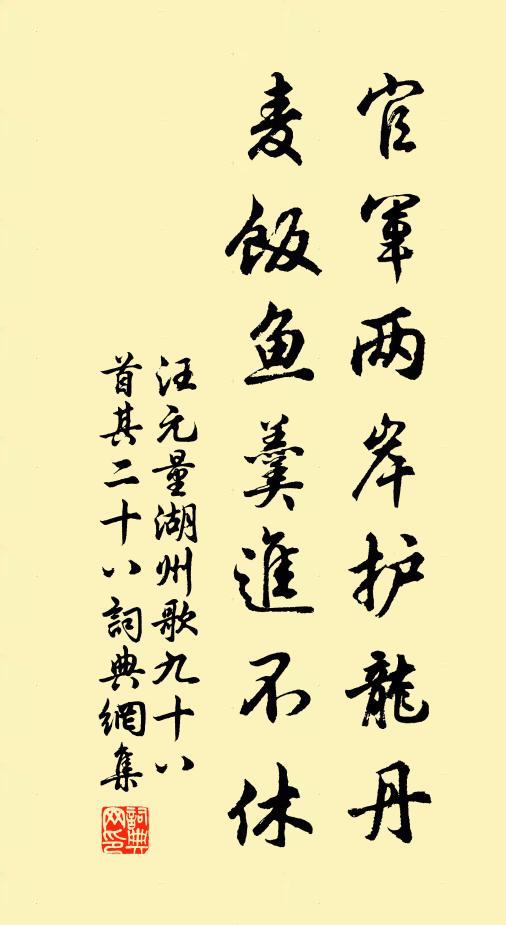 官军两岸护龍丹
麦飯鱼羹進不休
汪元量湖州歌九十八
首其二十八詞典網集
詞典
网印